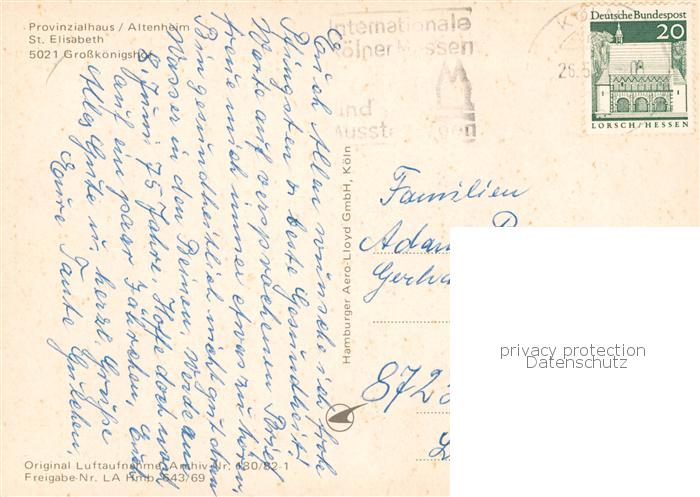 Provinzialhaus / Altenheim
St. Elisabeth
5021 Großkönigsho
Internationale
Kölner Messen
und
Ausstellungen
KÖLN
26.5
Deutsche Bundespost
20
LORSCH/HESSEN
Euch Allen wünsche ich froh
Pfingsten u. beste Gesundheit!
Warte auf versprochenen Brief
freue mich immer etwas zu hören.
Bin gesundheitlich nicht gut dran
Wasser in den Beinen. Werde am
Juni 75 Jahre. Hoffe doch noch
auf ein paar Jährchen. Euch
Alles Gute u. herzl. Grüße
Eure Tante
Hamburger Aero-Lloyd GmbH, Köln
Familien
Adam
Gerha
8723
Original Luftaufnahme, Archiv-Nr. 180/82-1
Freigabe-Nr. LA Hmb. 643/69
privacy protection
Datenschutz